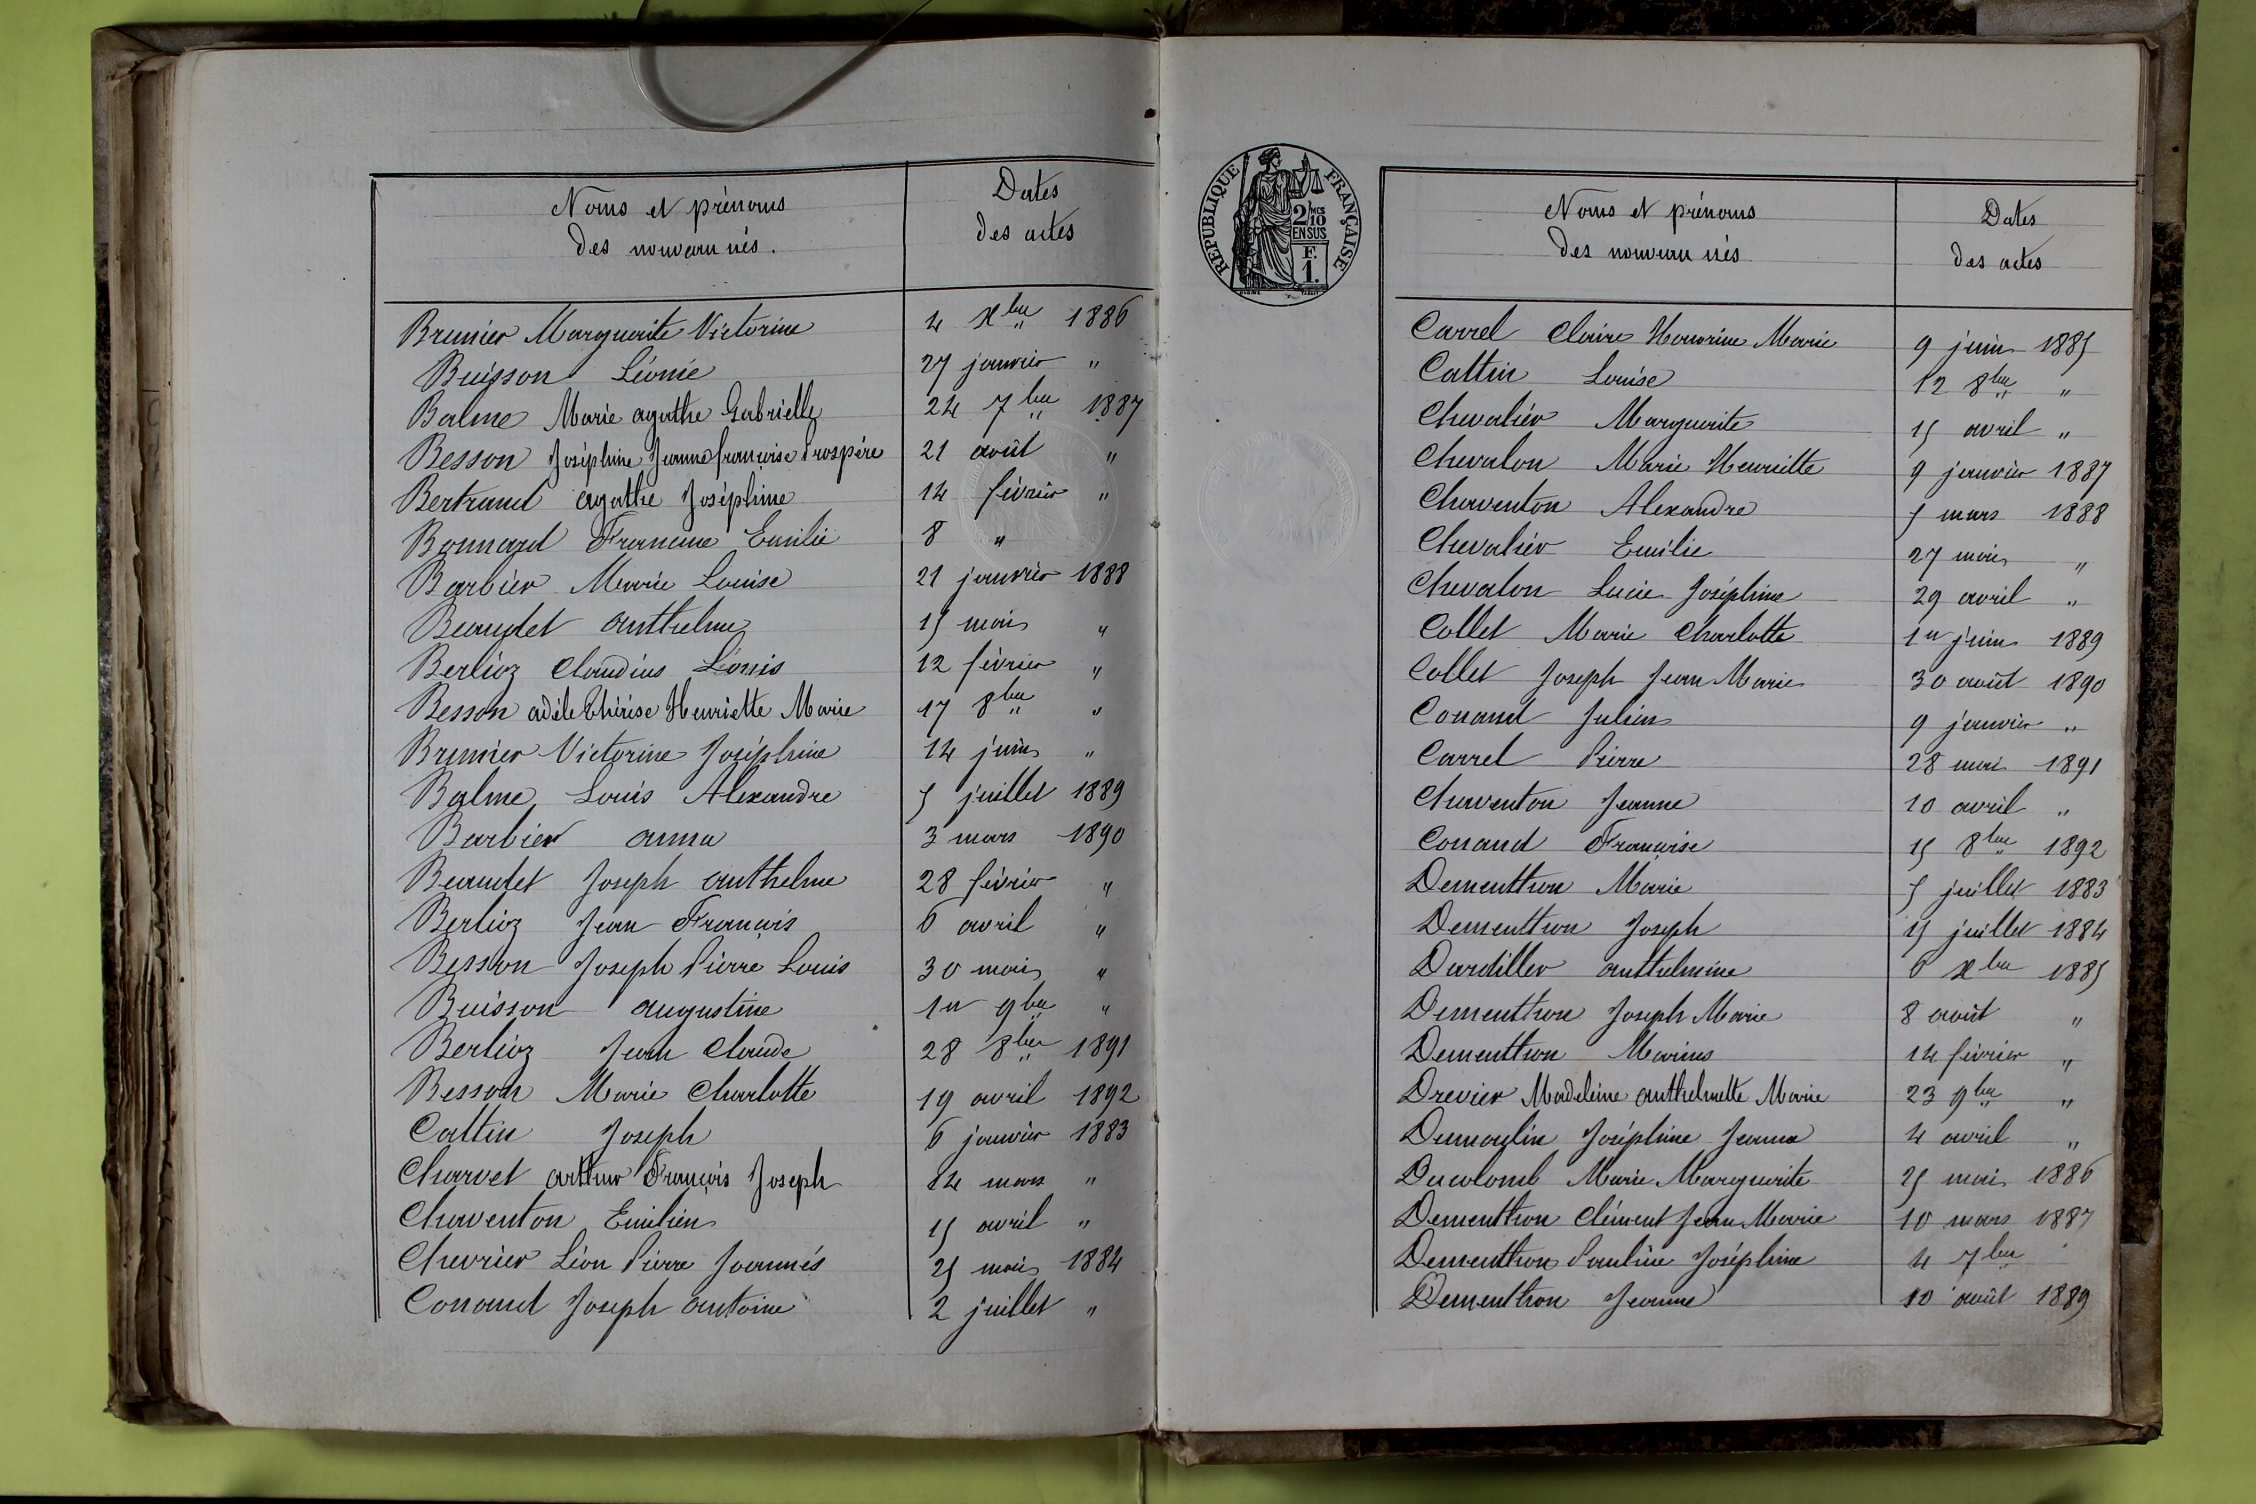 Noms et prénoms Dates
des nouveau nés. des actes
Brunier Marguerite Victorine 4 Xbre 1886
Buisson Léonie 27 janvier "
Balme Marie agathe Gabrielle 24 7bre 1887
Besson Joséphine Jeanne françoise Prospère 21 août "
Bertrand agathe Joséphine 14 février "
Bonnard Francine Emilie 8 "
Barbier Marie Louise 21 janvier 1888
Beaudet anthelme 15 mai "
Berlioz Claudius Louis 12 février "
Besson adèle Thérèse Henriette Marie 17 8bre "
Brunier Victorine Joséphine 14 juin "
Balme Louis Alexandre 5 juillet 1889
Barbier anna 3 mars 1890
Beaudet Joseph anthelme 28 février "
Berlioz Jean François 6 avril "
Besson Joseph Pierre Louis 30 mai "
Buisson augustine 1er 9bre "
Berlioz Jean Claude 28 8bre 1891
Besson Marie Charlotte 19 avril 1892
Cattin Joseph 6 janvier 1883
Charvet arthur François Joseph 14 mars "
Chaventon Emilien 15 avril "
Chevrier Léon Pierre Joannès 25 mai 1884
Conand Joseph antoine 2 juillet "
RÉPUBLIQUE FRANÇAISE
2/10 MES
EN SUS
F.
1.
Noms et prénoms Dates
des nouveau nés des actes
Carrel Claire Honorine Marie 9 juin 1885
Cattin Louise 12 8bre "
Chevalier Marguerite 15 avril "
Chevalon Marie Henriette 9 janvier 1887
Chaventon Alexandre 5 mars 1888
Chevalier Emilie 27 mai "
Chevalon Lucie Joséphine 29 avril "
Collet Marie Charlotte 1er juin 1889
Collet Joseph Jean Marie 30 août 1890
Conand Julien 9 janvier "
Carrel Pierre 28 mai 1891
Chaventon Jeanne 10 avril "
Conand Françoise 15 8bre 1892
Dementhon Marie 5 juillet 1883
Dementhon Joseph 15 juillet 1884
Dardiller anthelmine 6 Xbre 1885
Dementhon Joseph Marie 8 août "
Dementhon Marius 14 février "
Drevier Madeleine anthelmette Marie 23 9bre "
Dumoulin Joséphine Jeanne 4 avril "
Ducolomb Marie Marguerite 25 mai 1886
Dementhon Clément Jean Marie 10 mars 1887
Dementhon Pauline Joséphine 4 7bre "
Dementhon Jeanne 10 août 1889